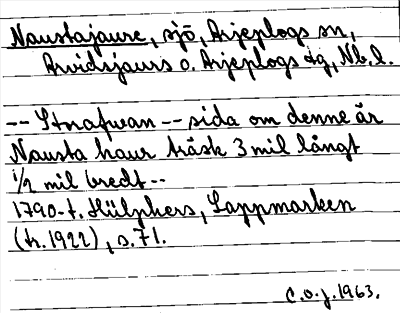 Naustajaure, sjö, Arjeplogs sn,
Arvidsjaurs o. Arjeplogs tg, Nb.l.
-- Strafwan -- sida om denne är
Nausta haur träsk 3 mil långt
1/2 mil bredt --
1790-t. Hülphers, Lappmarken
(tr. 1922), s. 71.
C.O.J. 1963.